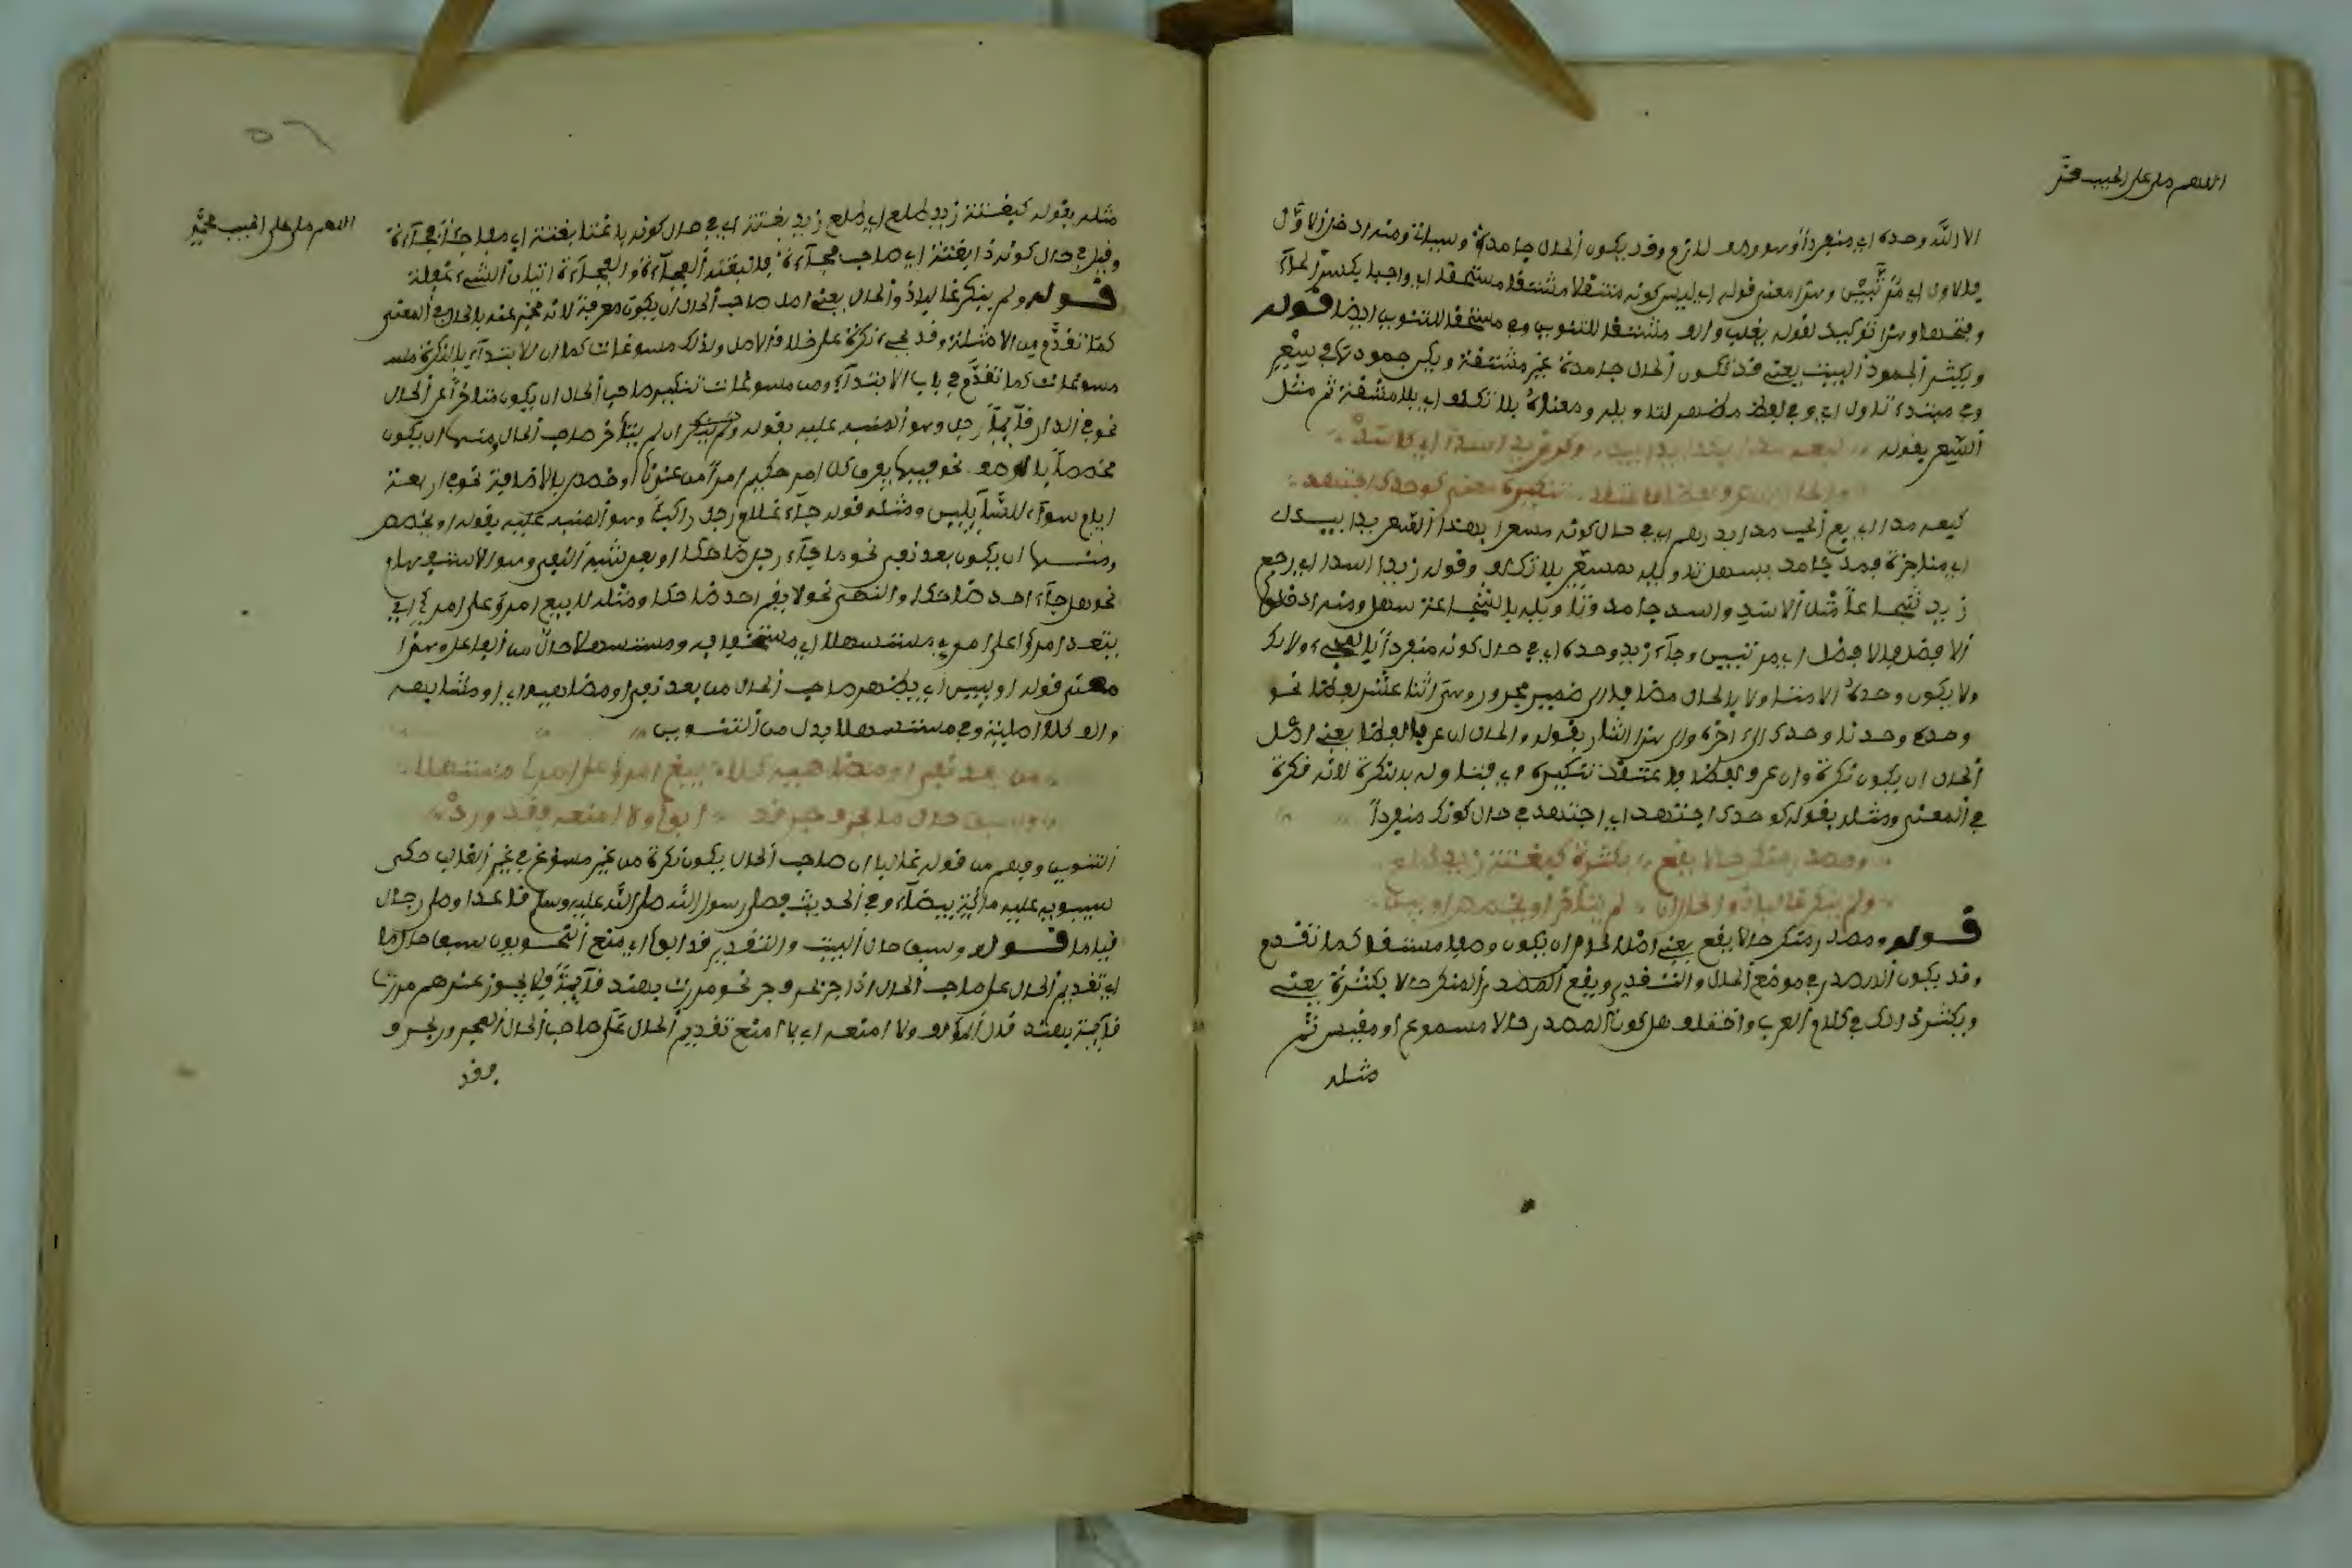 اللهم صل على الحبيب محمد
الا الله وحده اي منفردا وهو وصف لازم وقد يكون الحال جامدة وسببانة ومنه ادخلوا الاول
فالاول اي مرتبين وهذا معنى قوله اي ليس كونه منتقلا مشتقا مستحقا اي واجبا بكسر الحاء
وفتحها وهذا توكيد لقوله يغلب والف مشتقا للتنوين وفي مستحقا للتنوين ايضا قوله
ويكثر الجمود البيت يعني قد تكون الحال جامدة غير مشتقة ويكثر جمودها في سعر
وفي مبدء تاول اي وفي لفظ مظهر لتاويله ومعناه بلا تكلف اي بلا مشقة ثم مثل
السعر بقوله كبعه مدا بكذا يدا بيد وكر زيد اسدا اي كاسد
والحال ان عرف لفظا فاعتقد تنكيره معنى كوحدك اجتهد
كبعه مدا اي بع الحب مدا بدرهم اي في حال كونه مسعرا بهذا السعر يدا بيد
اي مناجزة فمدا جامد يسهل تاويله بمسعر بلا تكلف وقوله زيد اسدا اي رجع
زيد شجاعا مثل الاسد واسد جامد وتاويله بالشجاعة سهل ومنه ادخلوا
الافضل فالافضل اي مرتبين وجاء زيد وحده اي في حال كونه منفردا بالمجيء ولا
ولا يكون وحده الا منتا ولا بالحال مضافا الى ضمير مجرور وهي اثنا عشر لفظا نحو
وحده وحدنا وحدك الى اخره والى هذا اشار بقوله والحال ان عرف لفظا يعني اصل
الحال ان يكون نكرة وان عرف لفظا فاعتقد تنكيره اي فتاوله بنكرة لانه نكرة
في المعنى ومثله بقوله كوحدك اجتهد اي اجتهد في حال كونك منفردا
ومصدر منكر حالا يقع بكثرة كبغتة زيد طلع
ولم ينكر غالبا ذو الحال ان لم يتاخر او يخصص او يبن
قوله ومصدر منكر حالا يقع يعني اصل الحال ان يكون وصفا مشتقا كما تقدم
وقد يكون المصدر في موضع الحال والتقدير ويقع المصدر المنكر حالا بكثرة يعني
ويكثر ذلك في كلام العرب واختلف هل كون المصدر حالا مسموع او مقيس ثم
مثله
٥٦
اللهم صل على الحبيب محمد
مثله بقوله كبغتة زيد طلع اي طلع زيد بغتة اي في حال كونه باغتا بغتة اي مفاجئا فجاءة
وقيل في حال كونه ذا بغتة اي صاحب فجاءة فالبغتة الفجاءة والفجاءة اتيان الشيء غفلة
قوله ولم ينكر غالبا ذو الحال يعني اصل صاحب الحال ان يكون معرفة لانه مخبر عنه بالحال في المعنى
كما تقدم من الامثلة وقد يجيء نكرة على خلاف الاصل وذلك مسوغات كما ان الابتداء بالنكرة له
مسوغات كما تقدم في باب الابتداء ومن مسوغات تنكير صاحب الحال ان يكون متاخرا عن الحال
نحو في الدار قائما رجل وهو المنبه عليه بقوله ولم ينكر ان لم يتاخر صاحب الحال ومنها ان يكون
مخصصا بالوصف نحو فيها يفرق كل امر حكيم امرا من عندنا او خصص بالاضافة نحو في اربعة
ايام سواء للسائلين ومثله قوله جاء غلام رجل راكبا وهو المنبه عليه بقوله او يخصص
ومنها ان يكون بعد نفي نحو ما جاء رجل ضاحكا او بعد شبه النفي وهو الاستفهام
نحو هل جاء احد ضاحكا والنهي نحو لا يقم احد ضاحكا ومثله لا يبغ امرؤ على امرئ اي
يتعد امرؤ على امرئ مستسهلا اي مستخفا به ومستسهلا حال من الفاعل وهذا
معنى قوله او يبن اي يظهر صاحب الحال من بعد نفي او مضاهيه اي او مشابهه
والف كلا اصلية وفي مستسهلا بدل من التنوين
من بعد نفي او مضاهيه كلا يبغ امرؤ على امرئ مستسهلا
وسبق حال ما بحرف جر قد ابوا ولا امنعه فقد ورد
التنوين وفهم من قوله غالبا ان صاحب الحال يكون نكرة من غير مسوغ في غير الغالب حكى
سيبويه عليه مائة بيضا وفي الحديث فصلى رسول الله صلى الله عليه وسلم قاعدا وصلى رجال
قياما قوله وسبق حال البيت والتقدير قد ابوا اي منع النحويون سبق حال ما
اي تقديم الحال على صاحب الحال اذا جر بحرف جر نحو مررت بهند قائمة فلا يجوز عندهم مررت
قائمة بهند قال المؤلف ولا امنعه اي لا امنع تقديم الحال على صاحب الحال المجرور بحرف
فقد